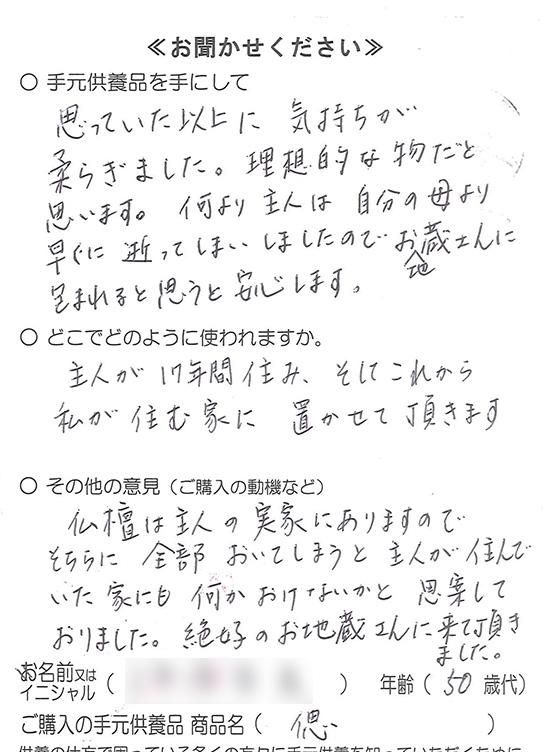 ≪お聞かせください≫
○ 手元供養品を手にして
思っていた以上に 気持ちが
柔らぎました。理想的な物だと
思います。 何より主人は 自分の母より
早ぐに 逝ってしまいしましたのでお地蔵さんに
包まれると思うと安心します。
○ どこでどのように使われますか。
主人が 17年間 住み、そしてこれから
私が 住む家に 置かせて頂きます
○ その他の意見（ご購入の動機など）
仏檀は主人の実家にありますので
そちらに 全部 おいてしまうと主人が住んで
いた家にも 何か おけないかと 思案して
おりました。絶好のお地蔵さんに来て頂き
ました。
お名前又は
イニシャル （ ） 年齢（ 50 歳代）
ご購入の手元供養品 商品名（ 偲 ）